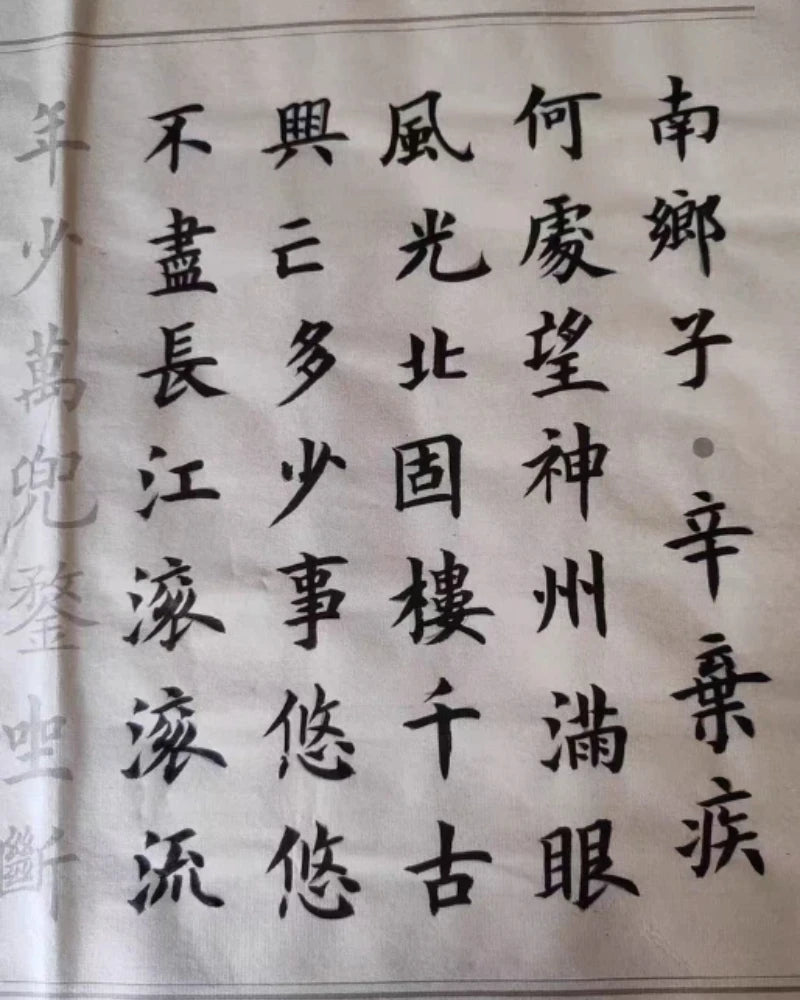 南鄉子·辛棄疾
何處望神州滿眼
風光北固樓千古
興亡多少事悠悠
不盡長江滾滾流
年少萬兜鍪坐斷